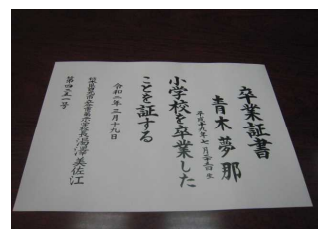 卒業証書
青木夢那
平成十九年七月
小学校を卒業した
ことを証する
令和二年三月十九日
美佐江
第四三一号